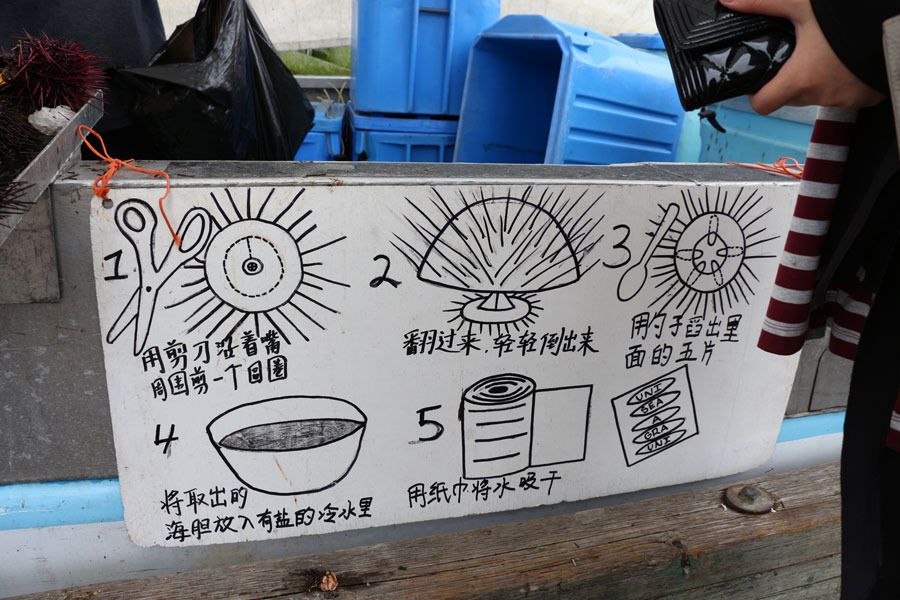 1
用剪刀沿着嘴
周围剪一个圆圈
2
翻过来,轻轻倒出来
3
用勺子舀出里
面的五片
4
将取出的
海胆放入有盐的冷水里
5
用纸巾将水吸干
UNI
SEA
A
GRA
UNI